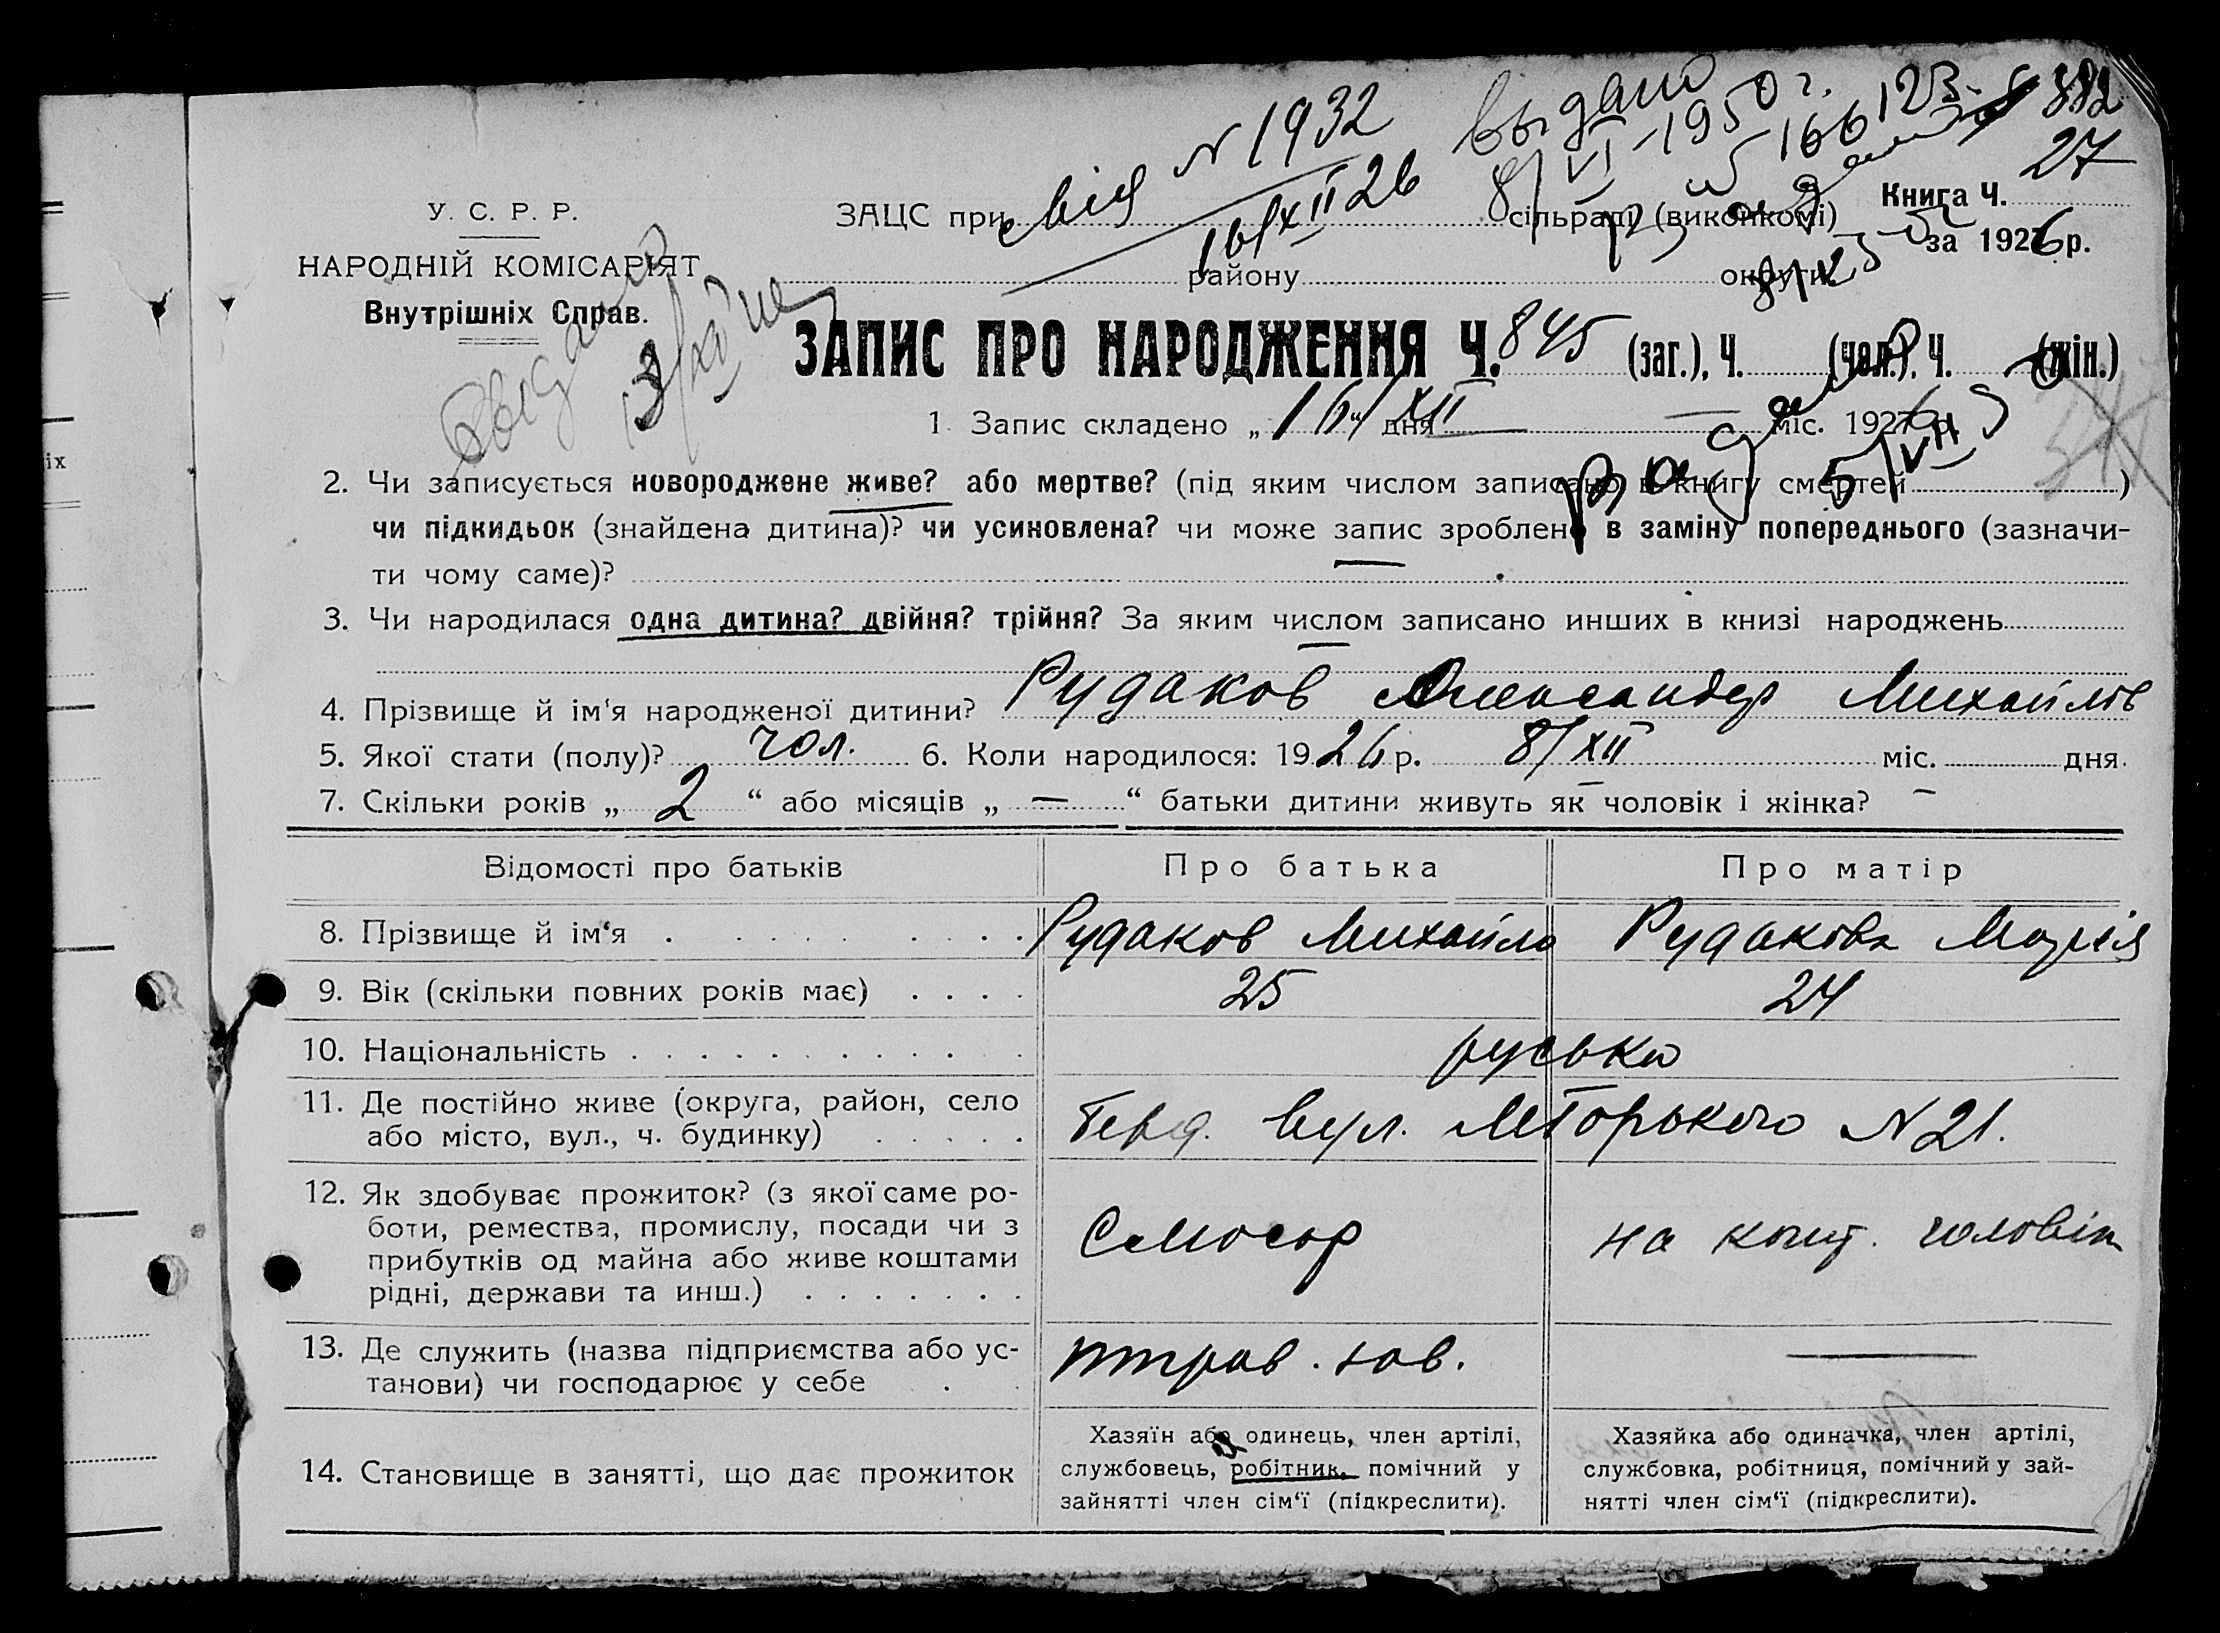 выдано
свід N 1932
8/VI-1950 г.
16/XII 26
382
27
У. С. Р. Р.
НАРОДНІЙ КОМІСАРІЯТ
Внутрішніх Справ.
ЗАЦС при сільраді (виконкомі)
Книга Ч.
за 1926 р.
району округи.
выдано
ЗАПИС ПРО НАРОДЖЕННЯ Ч. 845 (заг.), Ч. (чол.), Ч. (жін.)
1. Запис складено „ 16/XII “ дня — міс. 1926 р.
2. Чи записується новороджене живе? або мертве? (під яким числом записано в книгу смертей )
чи підкидьок (знайдена дитина)? чи усиновлена? чи може запис зроблено в заміну попереднього (зазначи-
ти чому саме)? —
3. Чи народилася одна дитина? двійня? трійня? За яким числом записано инших в книзі народжень
—
4. Прізвище й ім'я народженої дитини? Рудаков Олександр Михайлів
5. Якої стати (полу)? чол. 6. Коли народилося: 1926 р. 8/XII міс. дня.
7. Скільки років „ 2 “ або місяців „ — “ батьки дитини живуть як чоловік і жінка? —
Відомості про батьків Про батька Про матір
8. Прізвище й ім'я Рудаков Михайло Рудакова Марія
9. Вік (скільки повних років має) 25 24
10. Національність руська
11. Де постійно живе (округа, район, село
або місто, вул., ч. будинку) Берд. вул. М Горького N 21.
12. Як здобуває прожиток? (з якої саме ро-
боти, ремества, промислу, посади чи з
прибутків од майна або живе коштами
рідні, держави та инш.) Слюсар на кошт. чоловіка
13. Де служить (назва підприємства або ус-
танови) чи господарює у себе зав. —
14. Становище в занятті, що дає прожиток
Хазяїн або одинець, член артілі,
службовець, робітник, помічний у
зайнятті член сім'ї (підкреслити).
Хазяйка або одиначка, член артілі,
службовка, робітниця, помічний у зай-
нятті член сім'ї (підкреслити).